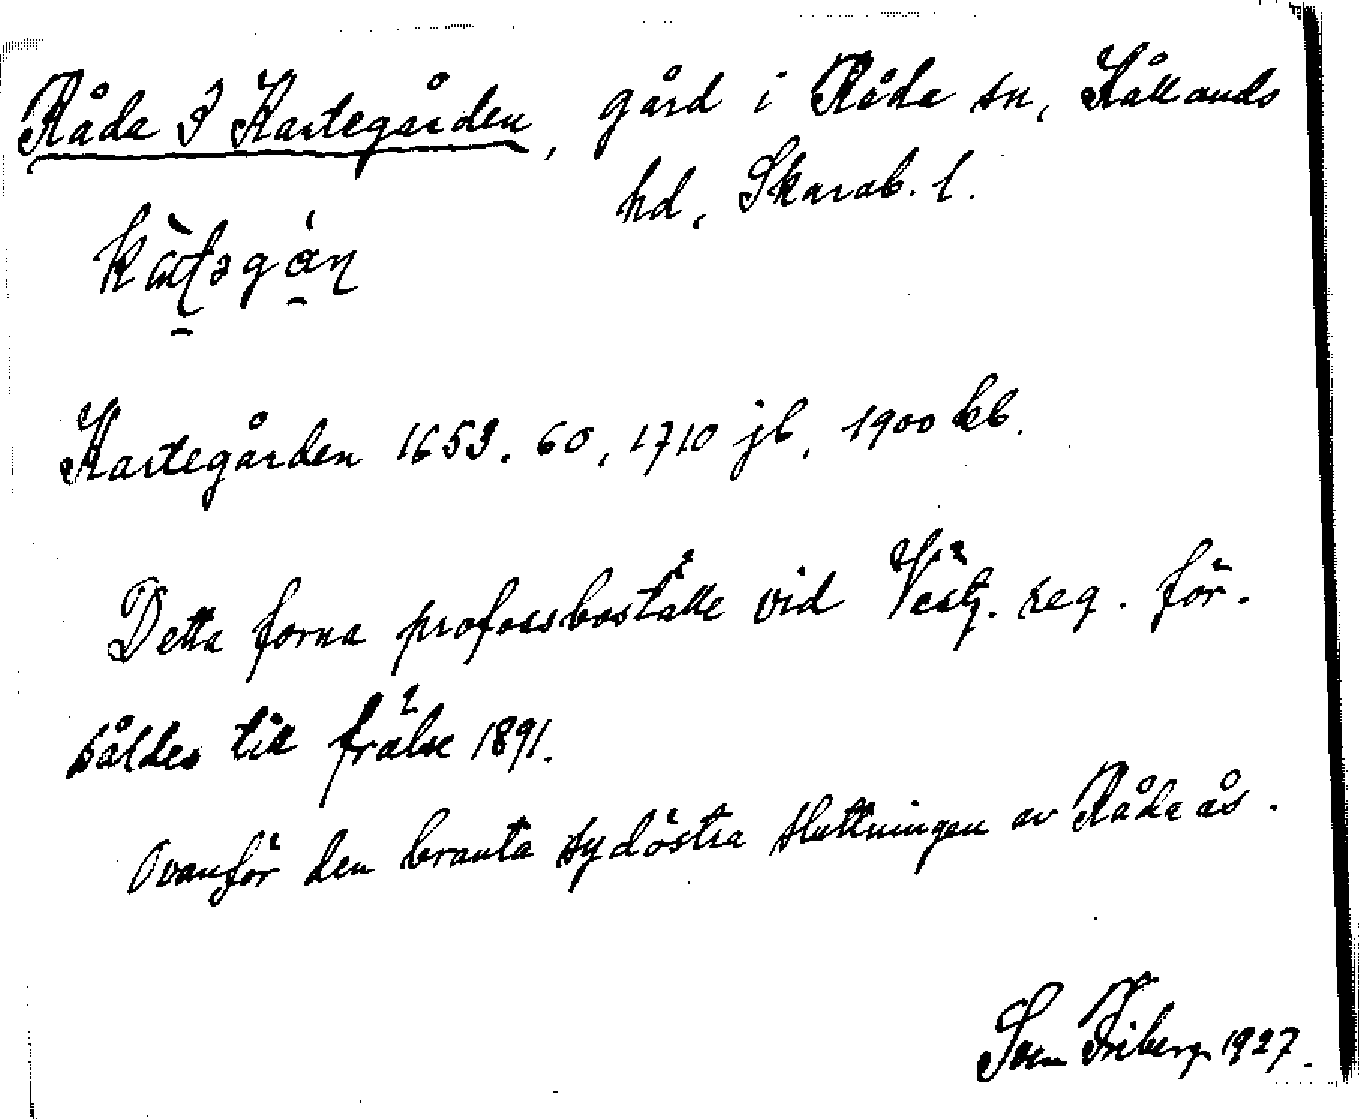 Råda 3 Kartegården, gård i Råda sn, Kållands
hd, Skarab. l.
Kartegården 1653. 60, 1710 jb, 1900 kb.
Detta forna profossboställe vid Västg. reg. för-
såldes till frälse 1891.
Ovanför den branta sydöstra sluttningen av Råda ås.
Sven Friberg 1927.